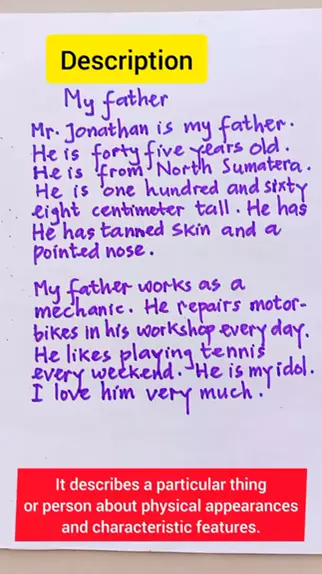 Description
My father
Mr. Jonathan is my father.
He is forty five years old.
He is from North Sumatera.
He is one hundred and sixty
eight centimeter tall. He has
He has tanned skin and a
pointed nose.
My father works as a
mechanic. He repairs motor-
bikes in his workshop every day.
He likes playing tennis
every weekend. He is my idol.
I love him very much.
It describes a particular thing
or person about physical appearances
and characteristic features.